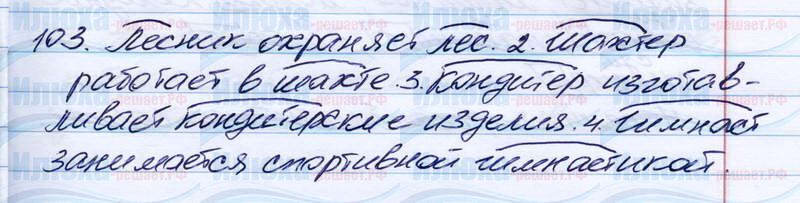 103. Лесник охраняет лес. 2. Шахтер
работает в шахте. 3. Кондитер изготав-
ливает кондитерские изделия. 4. Гимнаст
занимается спортивной гимнастикой.